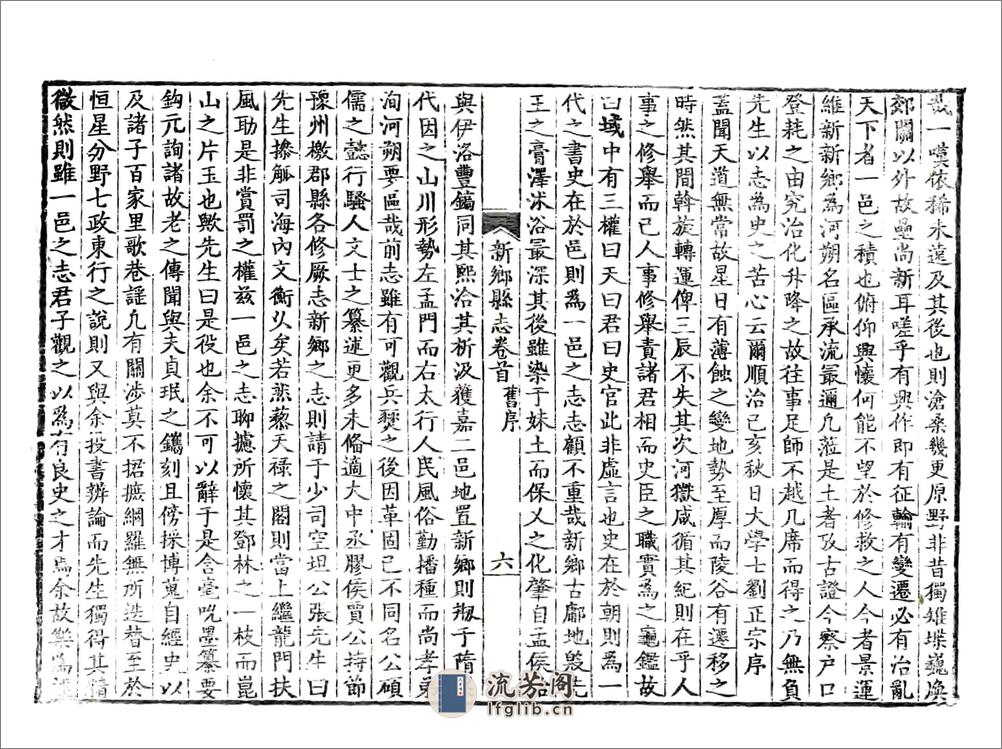 一嘆依稀未遠及其後也則滄桒幾更原野非昔獨雉堞巍煥
郊關以外故壘尚新耳嗟乎有興作即有征輸有變遷必有治亂
天下者一邑之積也俯仰興懷何能不望於修救之人今者景運
維新新鄉為河朔名區承流最邇凡蒞是土者攷古證今察户口
登耗之由究治化升降之故往事足師不越几席而得之乃無負
先生以志為史之苦心云爾順治己亥秋日大學士劉正宗序
蓋聞天道無常故星日有薄蝕之變地勢至厚而陵谷有遷移之
時然其間斡旋轉運俾三辰不失其次河嶽咸循其紀則在乎人
事之修舉而已人事修舉責諸君相而史臣之職實為之龜鑑故
曰域中有三權曰天曰君曰史官此非虛言也史在於朝則為一
代之書史在於邑則為一邑之志志顧不重哉新鄉古鄘地毁先
王之膏澤沐浴最深其後雖染于妹土而保乂之化肇自孟侯治
新鄉縣志卷首 舊序 六
與伊洛豐鎬同其熙洽其析汲獲嘉二邑地置新鄉則刱于隋
代因之山川形勢左孟門而右太行人民風俗勤播種而尚孝弟
洵河朔要區哉前志雖有可觀兵燹之後因革固已不同名公碩
儒之懿行騷人文士之纂述更多未備適大中丞膠侯賈公持節
豫州檄郡縣各修厥志新鄉之志則請于少司空坦公張先生曰
先生摻觚司海內文衡乆矣若燃藜天禄之閣則當上繼龍門扶
風助是非賞罰之權兹一邑之志聊攄所懷其鄧林之一枝而崑
山之片玉也歟先生曰是役也余不可以辭于是含毫吮墨纂要
鈎元詢諸故老之傳聞與夫貞珉之鐫刻且傍採博蒐自經史以
及諸子百家里歌巷謡凡有關涉莫不捃摭綱羅無所遺替至於
恒星分野七政東行之說則又與余投書辨論而先生獨得其精
微然則雖一邑之志君子觀之以為有良史之才焉余故樂為
流芳阁
lfglib.cn